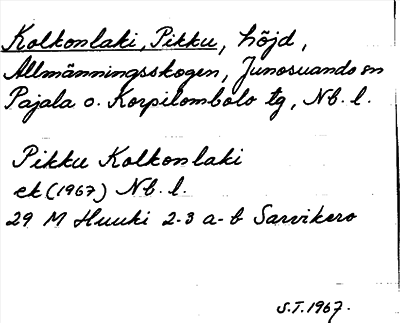 Kolkonlaki, Pikku, höjd,
Allmänningsskogen, Junosuando sn
Pajala o. Korpilombolo tg, Nb. l.
Pikku Kolkonlaki
ek (1967) Nb. l.
29 M Huuki 2-3 a-b Sarvikero
S.T. 1967.